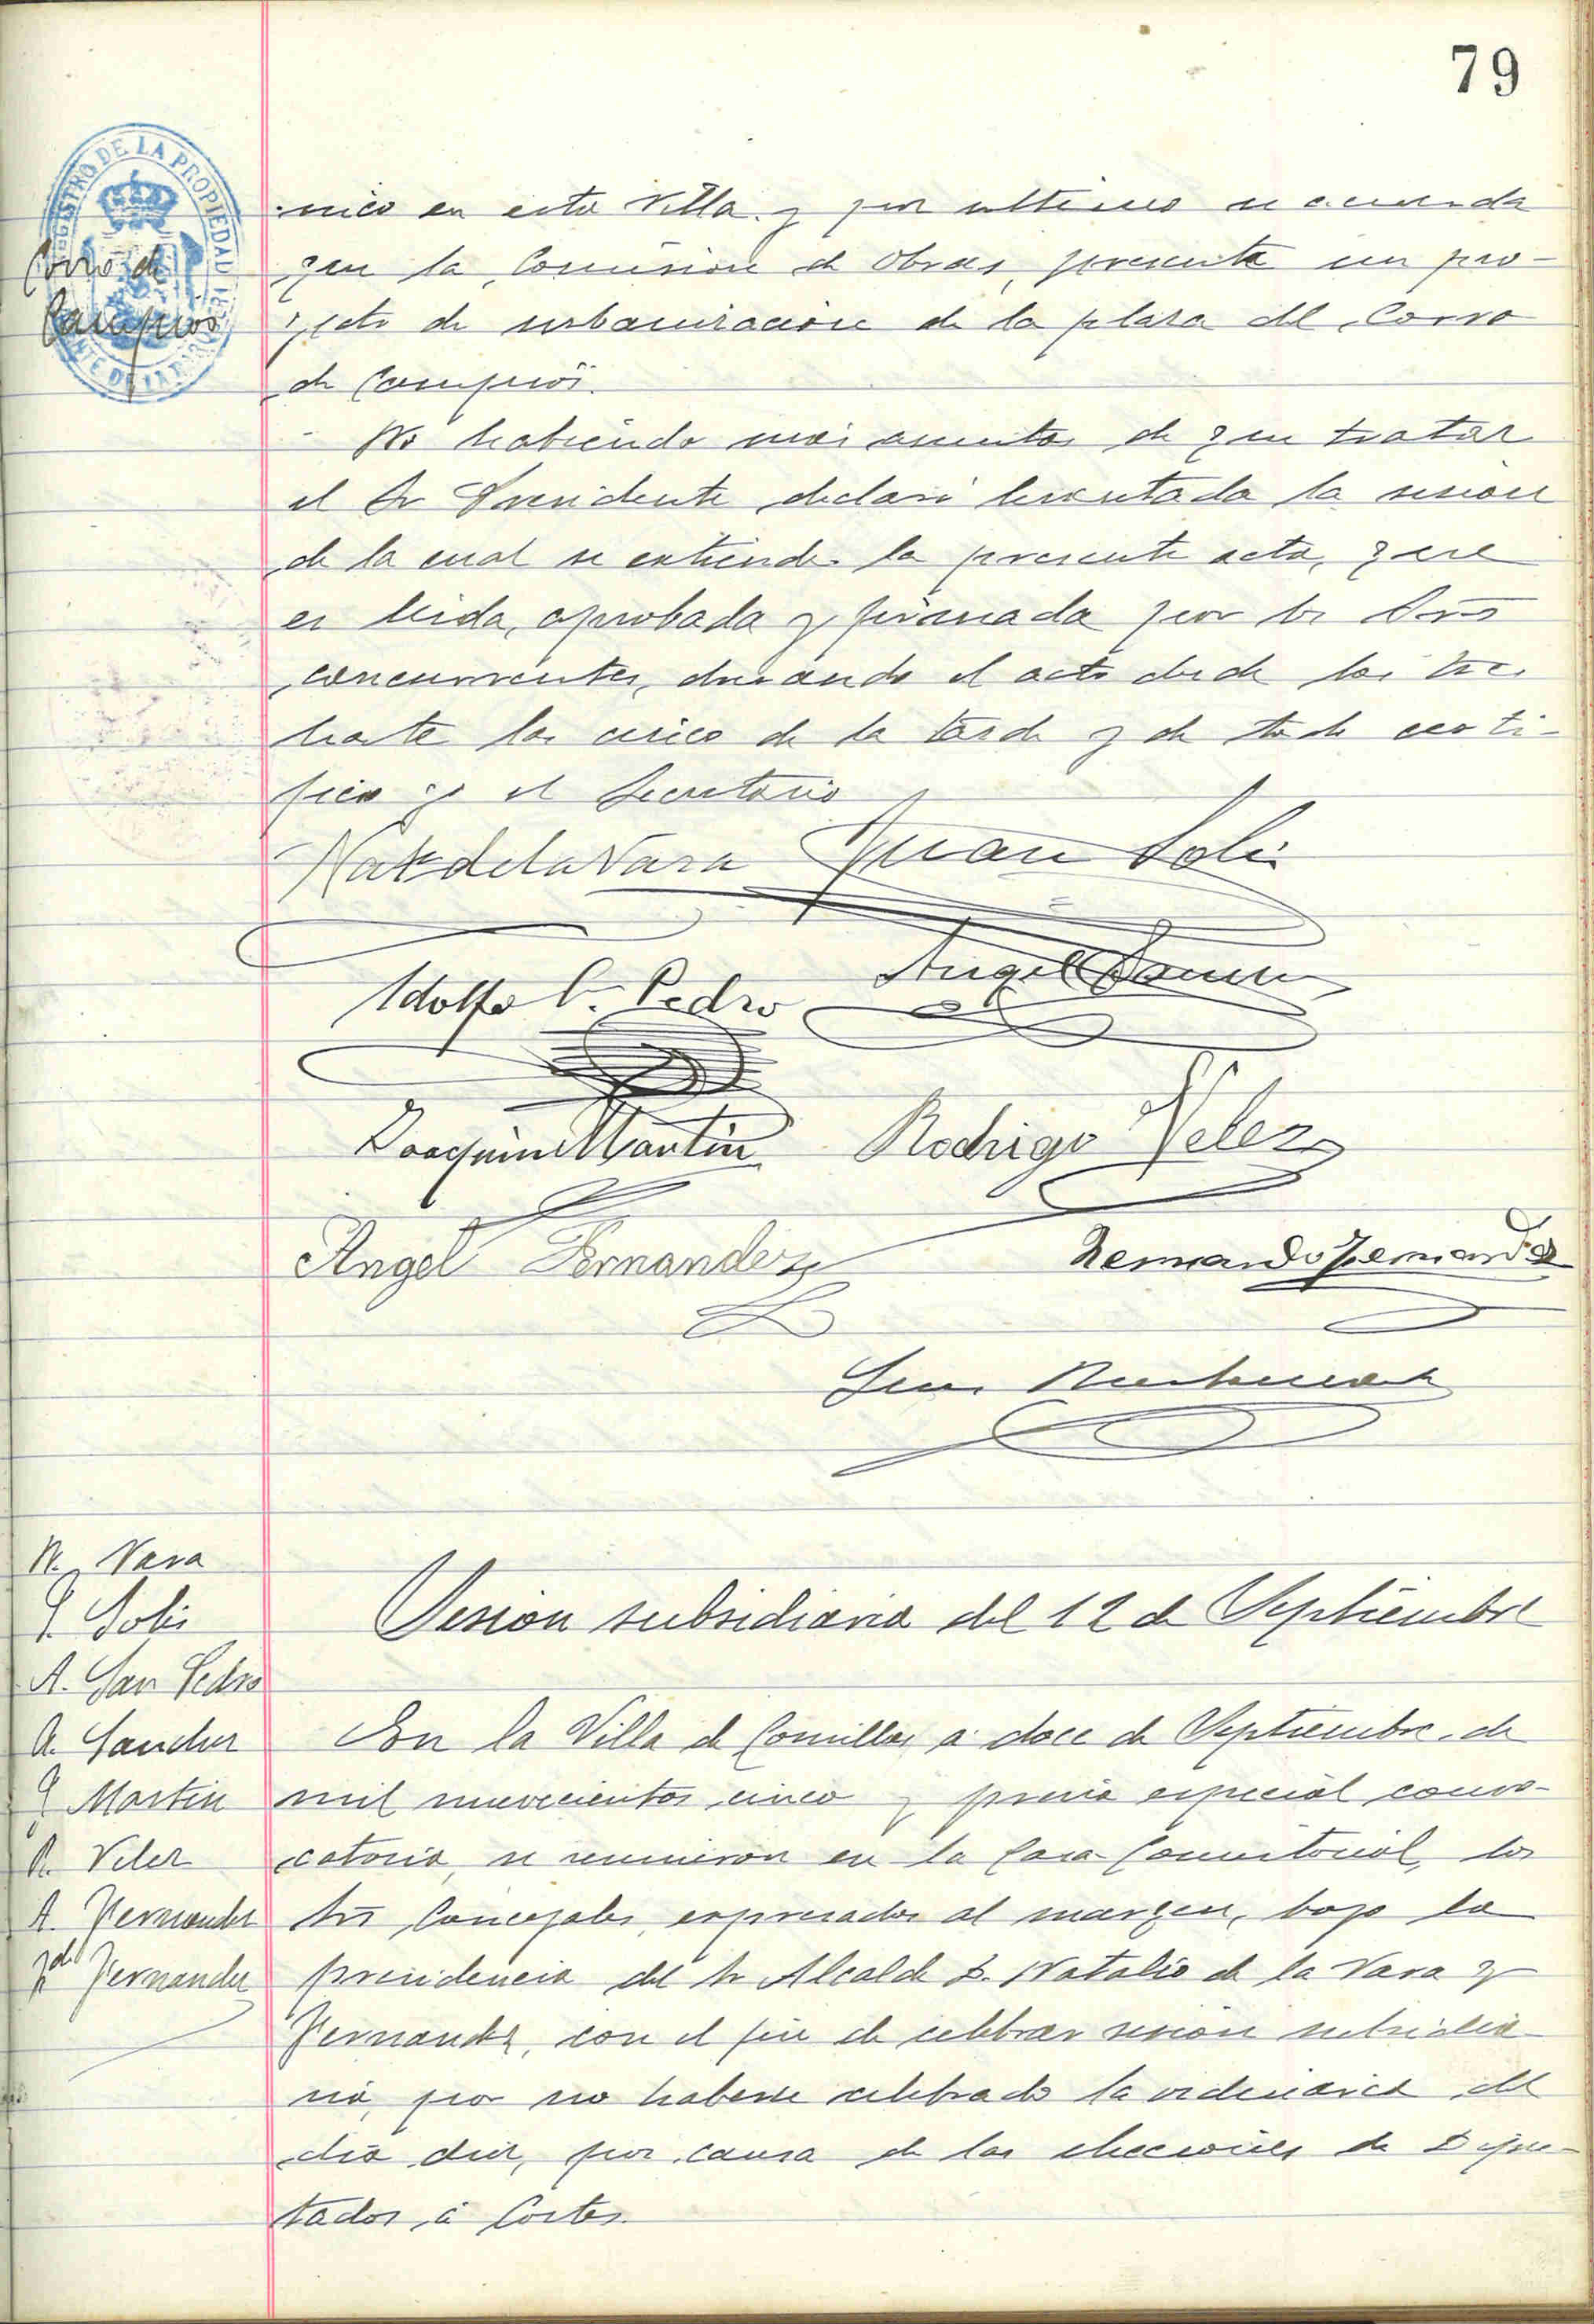 79
REGISTRO DE LA PROPIEDAD
Corro de
Campios
nico en esta Villa y por ultimo se acuerda
que la Comision de Obras, presente un pro-
yecto de urbanizacion de la plaza del Corro
de Campios.
No habiendo mas asuntos de que tratar
el Sr Presidente declaró levantada la sesion
de la cual se extiende la presente acta, que
es leida, aprobada y firmada por los Sres
concurrentes, durando el acto desde las tres
hasta las cinco de la tarde y de todo certi-
fico yo el Secretario
Nat de la Vara Juan Solis
Angel Sanchez
Adolfo S. Pedro
Joaquin Martin Rodrigo Velez
Angel Fernandez
Fernando Fernandez
N. Vara
J. Solis
A. San Pedro
A. Sanchez
J. Martin
R. Velez
A. Fernandez
Fdo Fernandez
Sesion subsidiaria del 12 de Septiembre
En la Villa de Comillas a doce de Septiembre de
mil novecientos cinco y previa especial convo-
catoria, se reunieron en la Casa Consistorial, los
Sres Concejales expresados al margen, bajo la
presidencia del Sr Alcalde D. Natalio de la Vara y
Fernandez, con el fin de celebrar sesion subsidia
ria, por no haberse celebrado la ordinaria del
dia diez, por causa de las elecciones de Dipu-
tados á Cortes.